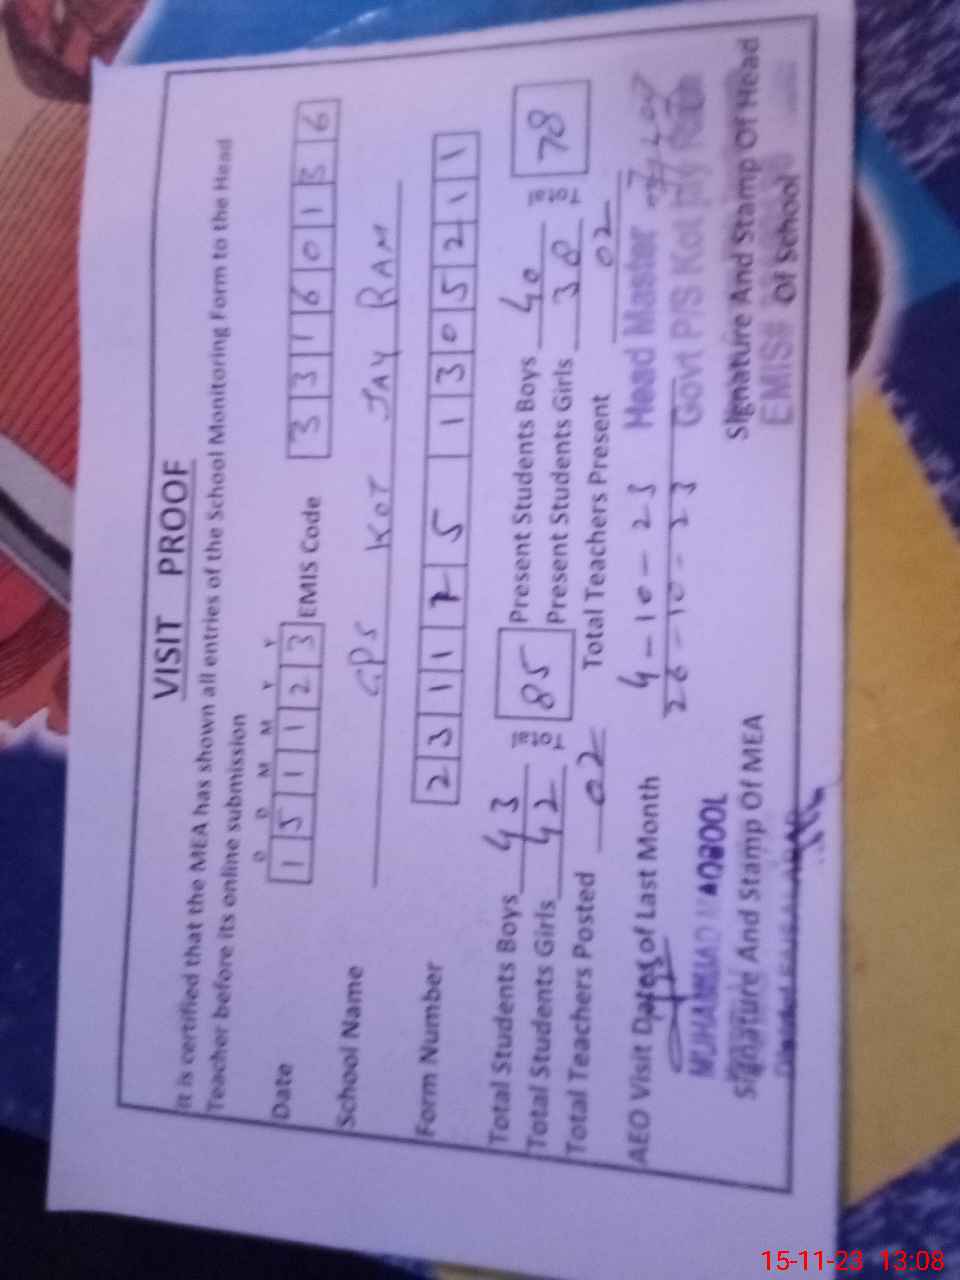 VISIT PROOF
It is certified that the MEA has shown all entries of the School Monitoring Form to the Head
Teacher before its online submission
D D M M Y Y
Date 1 5 1 1 2 3 EMIS Code 3 3 1 6 0 1 3 6
School Name GPS KOT JAY RAM
Form Number 2 3 1 1 7 5 1 3 0 5 2 1 1
Total Students Boys 43 Total 85 Present Students Boys 40 Total 78
Total Students Girls 42 Present Students Girls 38
Total Teachers Posted 02 Total Teachers Present 02
AEO Visit Dates of Last Month 4-10-23
26-10-23
Head Master
Govt P/S Kot Jay Ram
MUHAMMAD MAQBOOL
Signature And Stamp Of MEA
Signature And Stamp Of Head
EMIS# Of School
15-11-23 13:08